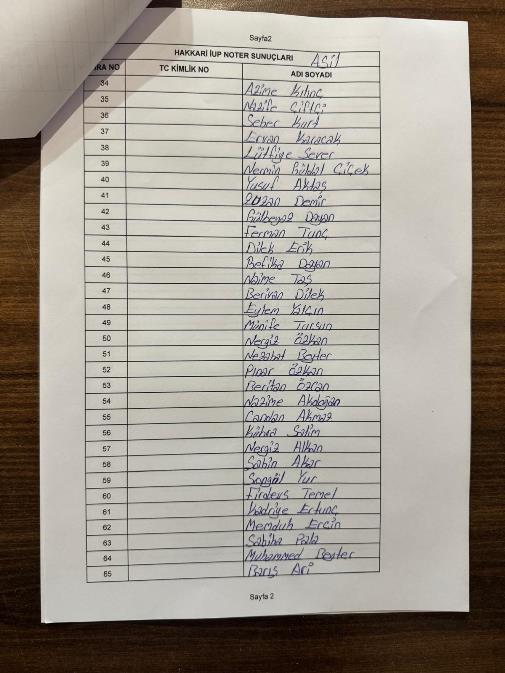 Sayfa2
HAKKARİ İUP NOTER SUNUÇLARI Asil
RA NO TC KİMLİK NO ADI SOYADI
34 Azime Kılınç
35 Nazife Çiftçi
36 Seher Kurt
37 Ervan Karacak
38 Lütfiye Sever
39 Nermin Çiçek
40 Yusuf Aktaş
41 Suzan Demir
42 Gülbeyaz Dayan
43 Ferman Tunç
44 Dilek Erik
45 Refika Dayan
46 Naime Taş
47 Berivan Dilek
48 Eylem Yalçın
49 Münife Tursun
50 Nergiz Özkan
51 Nezahat Beyter
52 Pınar Özkan
53 Beritan Özcan
54 Nazime Akdoğan
55 Candan Akmaz
56 Kübra Salim
57 Nergiz Alkan
58 Şahin Akar
59 Songül Yur
60 Firdevs Temel
61 Kadriye Ertunç
62 Memduh Ercin
63 Sabiha Pala
64 Muhammed Beyter
65 Barış Ari
Sayfa 2